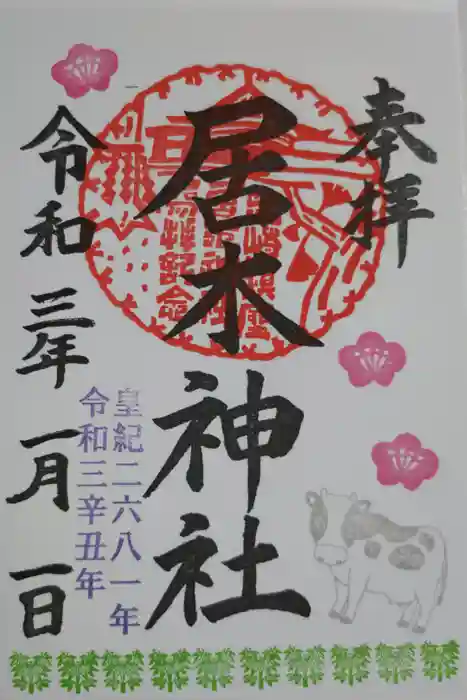 奉拝
居木神社
皇紀二六八一年
令和三辛丑年
令和三年一月一日